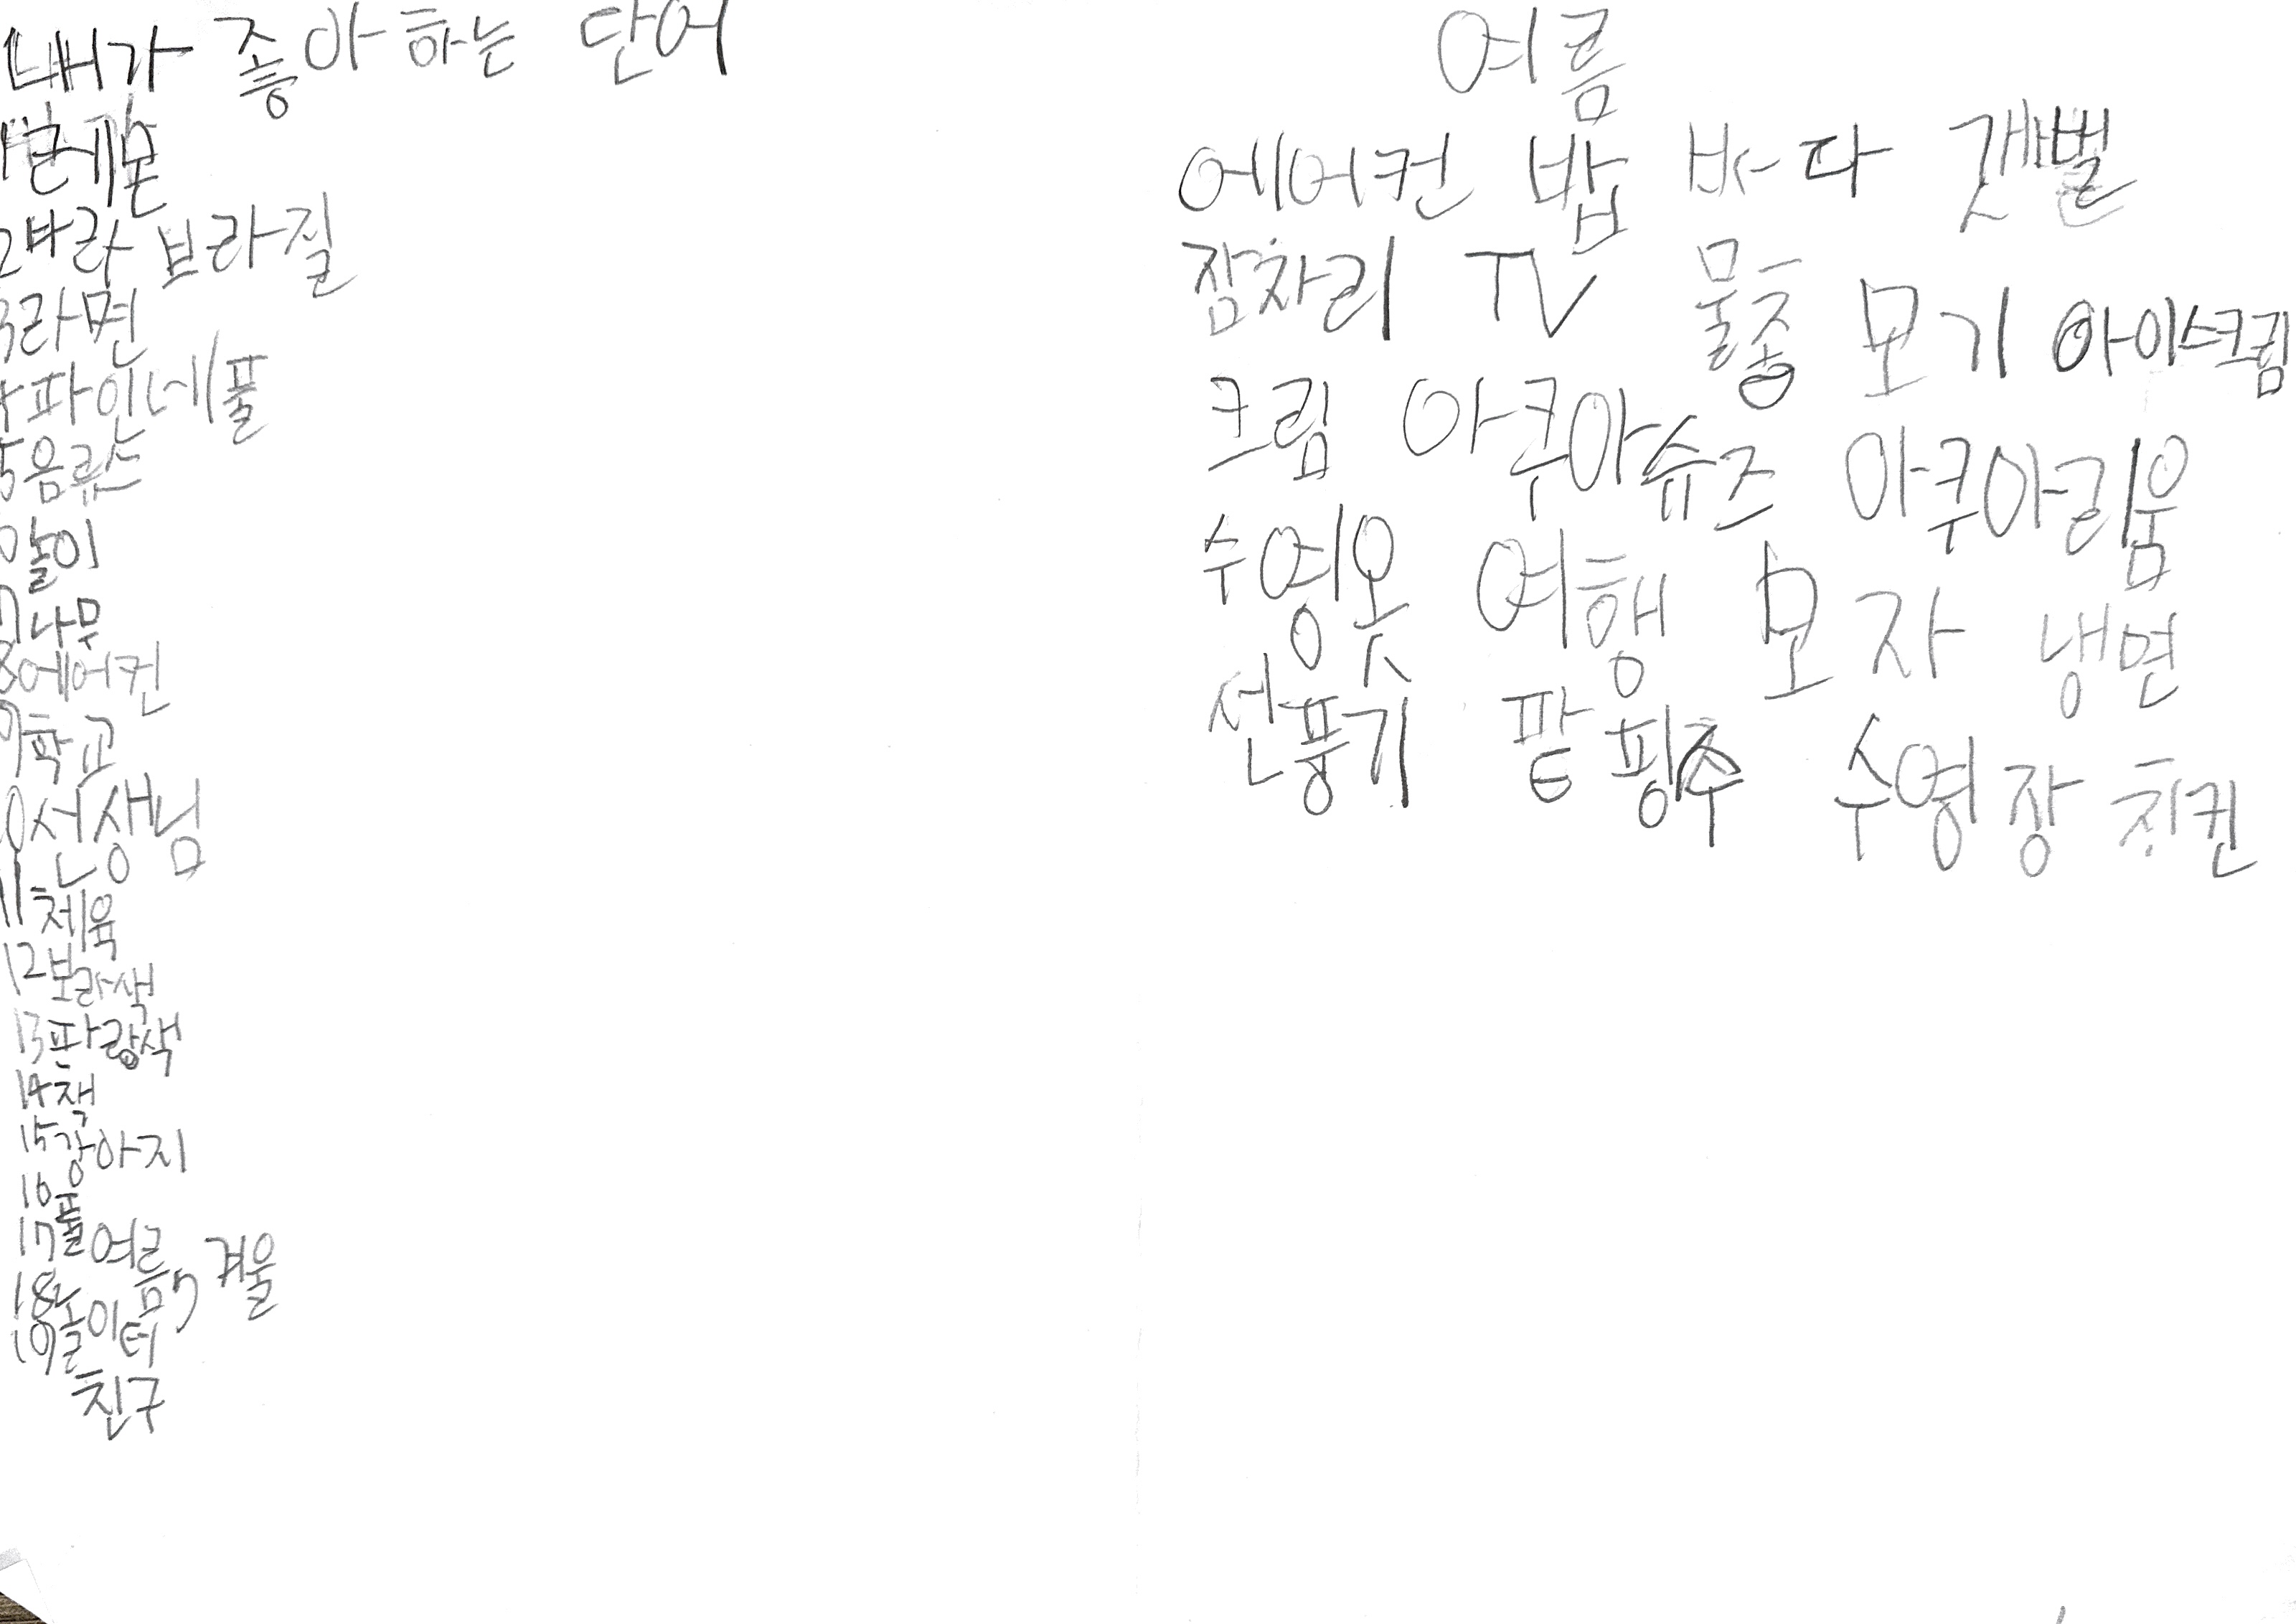 내가 좋아하는 단어
1 레몬
2 바라 보라질
3 라면
4 파인네플
5 음류스
6 놀이
7 나무
8 에어컨
9 학교
10 선생님
11 체육
12 보라색
13 파랑색
14 책
15 강아지
16 풀
17 여름, 겨울
18 놀이터
19 친구
여름
에어컨 밥 바다 갯벌
잠차리 TV 물총 모기 아이스크림
크림 아쿠아슈즈 아쿠아리움
수영옷 여행 모자 냉면
선풍기 팥핑수 수영장 치킨